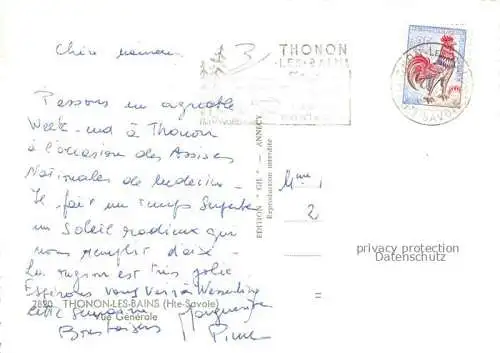 Chère maman
Passons un agréable
Week-end à Thonon
à l'occasion des Assises
Nationales de Médecine -
Il fait un temps superbe
un Soleil radieux qui
nous remplit d'aise -
La région est très jolie
Espérons vous voir à Wesserling
cette semaine
Bons baisers Marguerite
Pierre
7850 THONON-LES-BAINS (Hte-Savoie)
Vue Générale
THONON
-LES-BAINS
EDITION "GIL" - ANNECY
Reproduction interdite
Mme
2
privacy protection
Datenschutz